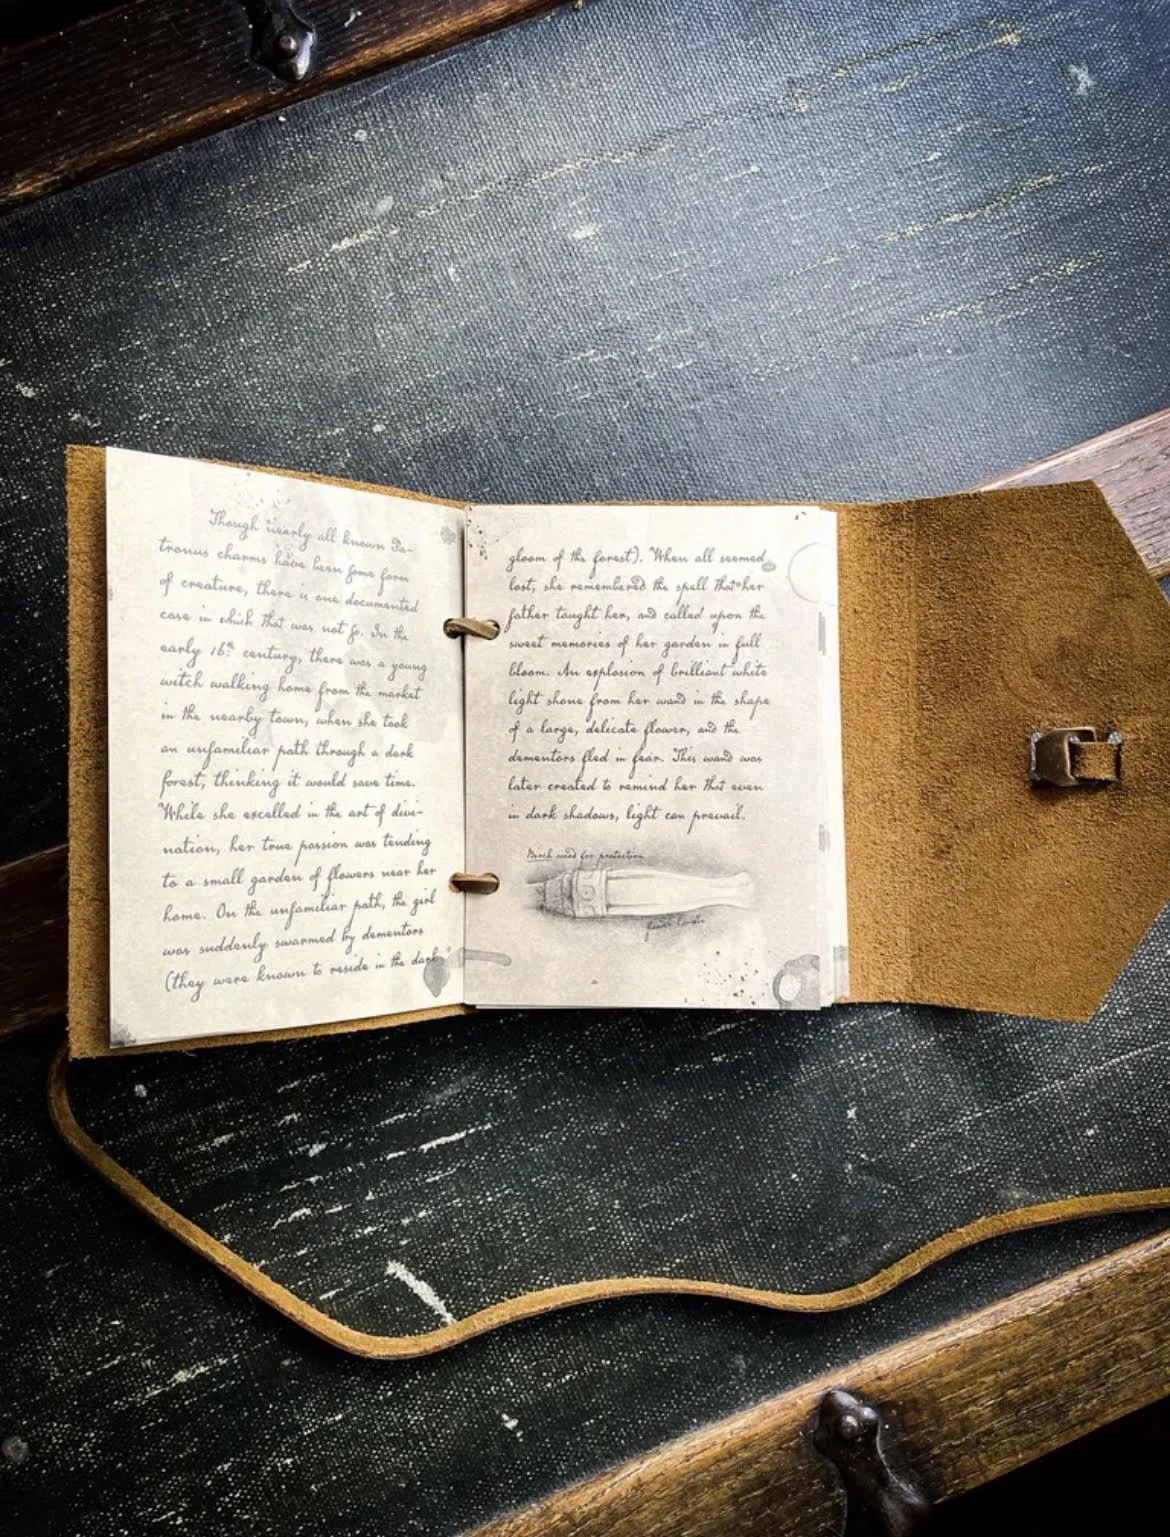 Though nearly all known Pa-
tronus charms have been some form
of creature, there is one documented
case in which that was not so. In the
early 16th century, there was a young
witch walking home from the market
in the nearby town, when she took
an unfamiliar path through a dark
forest, thinking it would save time.
While she excelled in the art of divi-
nation, her true passion was tending
to a small garden of flowers near her
home. On the unfamiliar path, the girl
was suddenly swarmed by dementors
(they were known to reside in the dark
gloom of the forest). When all seemed
lost, she remembered the spell that her
father taught her, and called upon the
sweet memories of her garden in full
bloom. An explosion of brilliant white
light shone from her wand in the shape
of a large, delicate flower, and the
dementors fled in fear. This wand was
later created to remind her that even
in dark shadows, light can prevail.
Birch wood for protection
flower